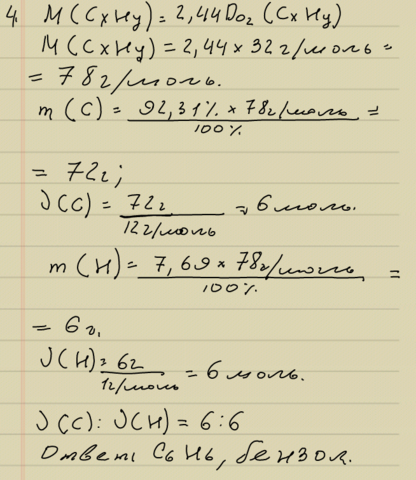 4. M(CxHy) = 2,44DO₂(CxHy)
M(CxHy) = 2,44 × 32 г/моль =
= 78 г/моль.
m(C) = 92,31% × 78 г/моль / 100% =
= 72 г;
ν(C) = 72 г / 12 г/моль = 6 моль.
m(H) = 7,69 × 78 г/моль / 100% =
= 6 г.
ν(H) = 6 г / 1 г/моль = 6 моль.
ν(C) : ν(H) = 6 : 6
Ответ: C₆H₆, бензол.